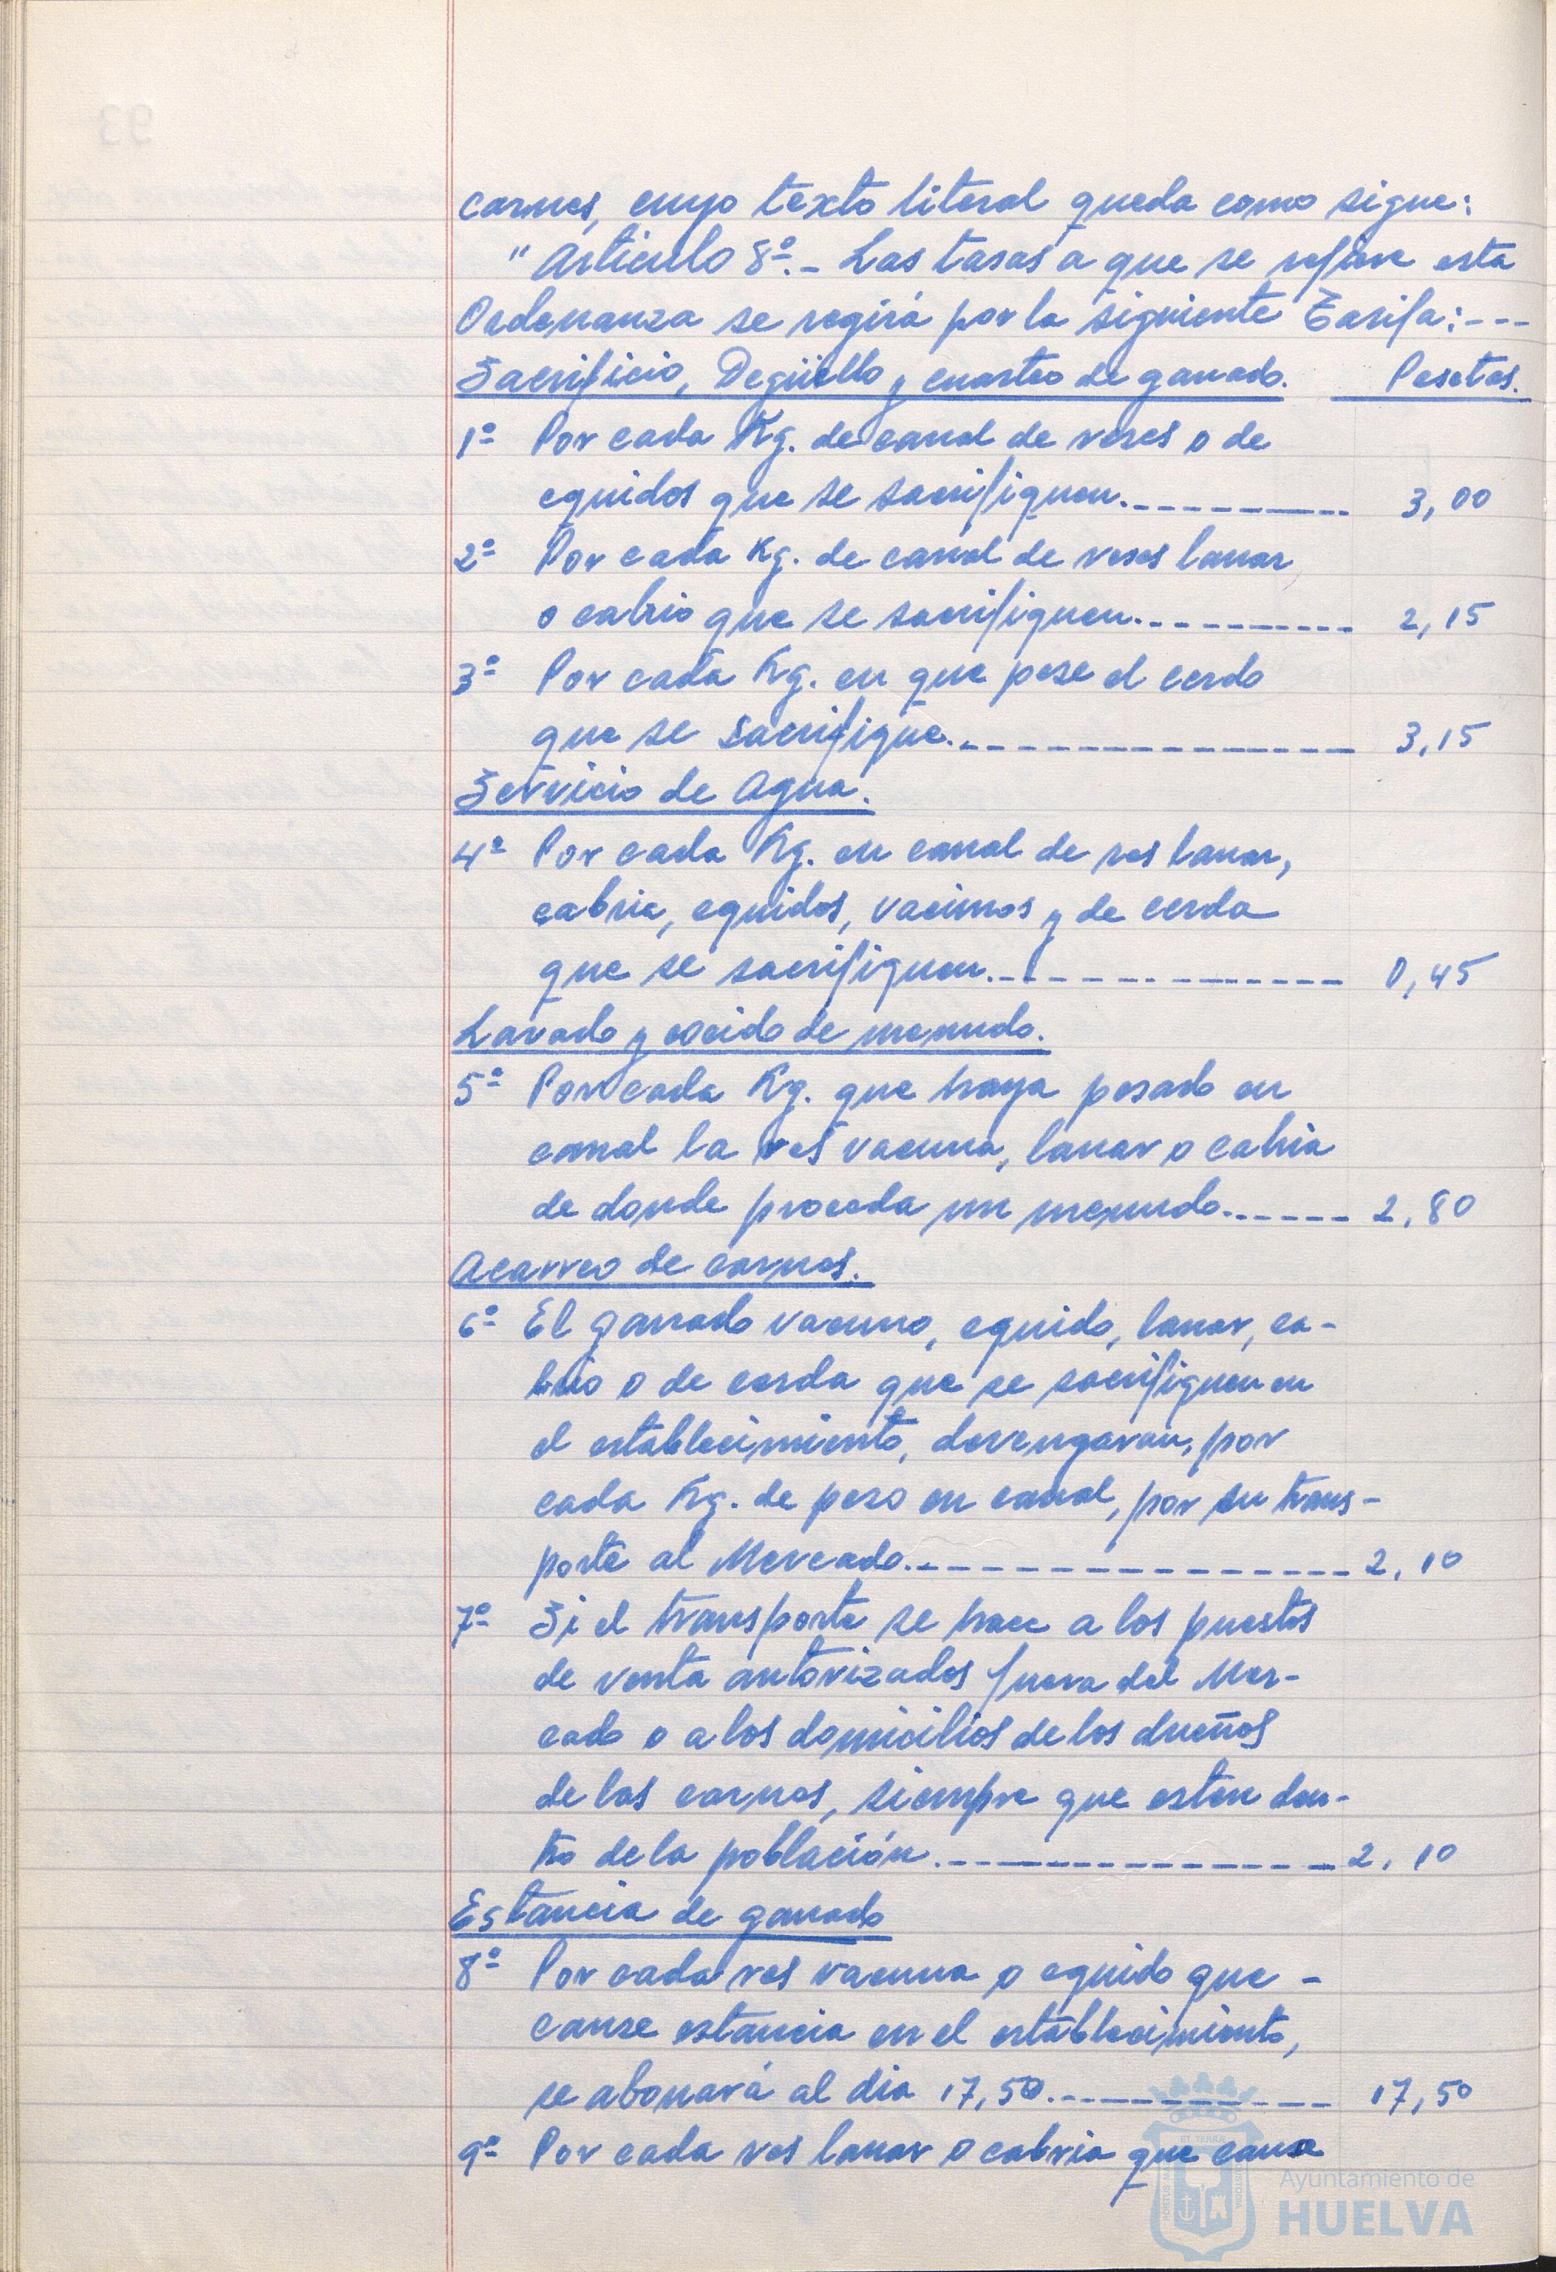 carnes, cuyo texto literal queda como sigue:
"Articulo 8º.- Las tasas a que se refiere esta
Ordenanza se regirá por la siguiente Tarifa:---
Sacrificio, Degüello y cuarteo de ganado. Pesetas.
1º Por cada Kg. de canal de reses o de
equidos que se sacrifiquen. 3,00
2º Por cada Kg. de canal de reses lanar
o cabrio que se sacrifiquen. 2,15
3º Por cada Kg. en que pese el cerdo
que se sacrifique. 3,15
Servicio de Agua.
4º Por cada Kg. en canal de res lanar,
cabria, equidos, vacunos y de cerda
que se sacrifiquen. 0,45
Lavado y cocido de menudo.
5º Por cada Kg. que haya pesado en
canal la res vacuna, lanar o cabria
de donde proceda un menudo. 2,80
Acarreo de carnes.
6º El ganado vacuno, equido, lanar, ca-
brio o de cerda que se sacrifiquen en
el establecimiento, devengaran, por
cada Kg. de peso en canal, por su trans-
porte al Mercado. 2,10
7º Si el transporte se hace a los puestos
de venta autorizados fuera del Mer-
cado o a los domicilios de los dueños
de las carnes, siempre que esten den-
tro de la población. 2,10
Estancia de ganado
8º Por cada res vacuna o equido que -
cause estancia en el establecimiento,
se abonará al dia 17,50. 17,50
9º Por cada res lanar o cabria que cause
Ayuntamiento de
HUELVA